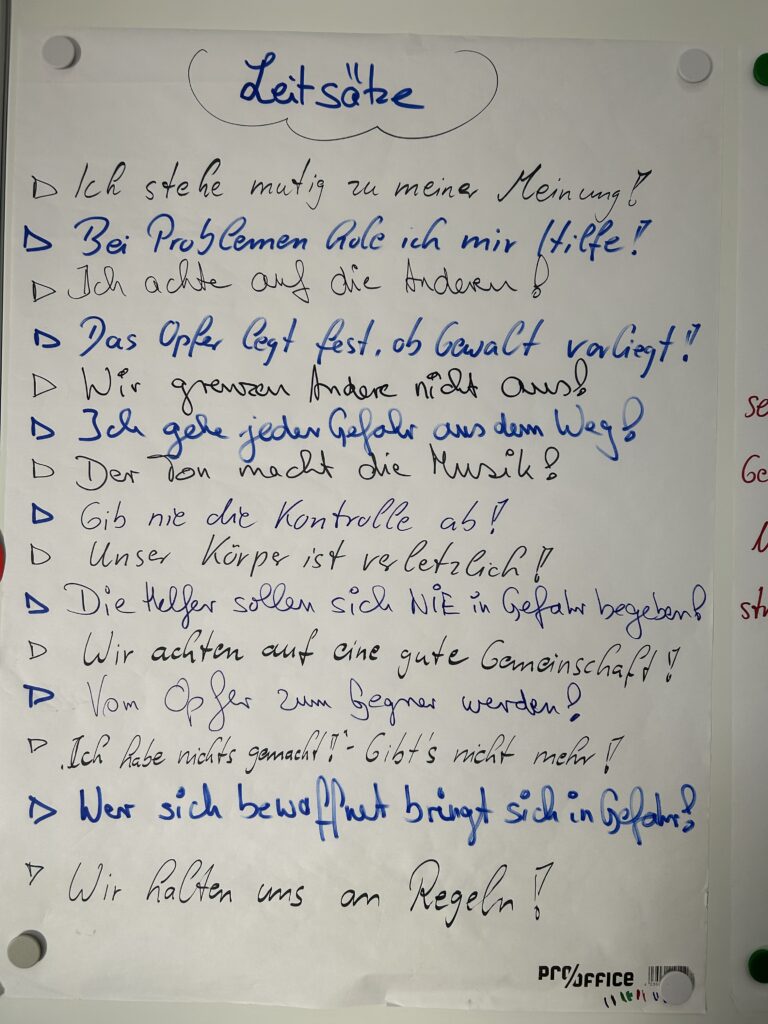 Leitsätze
Ich stehe mutig zu meiner Meinung!
Bei Problemen hole ich mir Hilfe!
Ich achte auf die Anderen!
Das Opfer legt fest, ob Gewalt vorliegt!
Wir grenzen Andere nicht aus!
Ich gehe jeder Gefahr aus dem Weg!
Der Ton macht die Musik!
Gib nie die Kontrolle ab!
Unser Körper ist verletzlich!
Die Helfer sollen sich NIE in Gefahr begeben!
Wir achten auf eine gute Gemeinschaft!
Vom Opfer zum Gegner werden!
"Ich habe nichts gemacht!" - Gibt's nicht mehr!
Wer sich bewaffnet bringt sich in Gefahr!
Wir halten uns an Regeln!
PRO/OFFICE